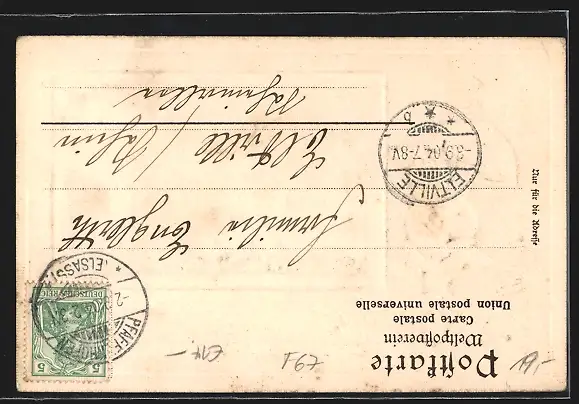 Postkarte
Weltpostverein
Carte postale
Union postale universelle
Nur für die Adresse
Familie Englerth
Eltville / Rhein
ELTVILLE
-3.9.04.7-8V.
* * b
PFAFF
HOFEN
* (ELSASS)
DEUTSCHES REICH
5 5
F67
19,-